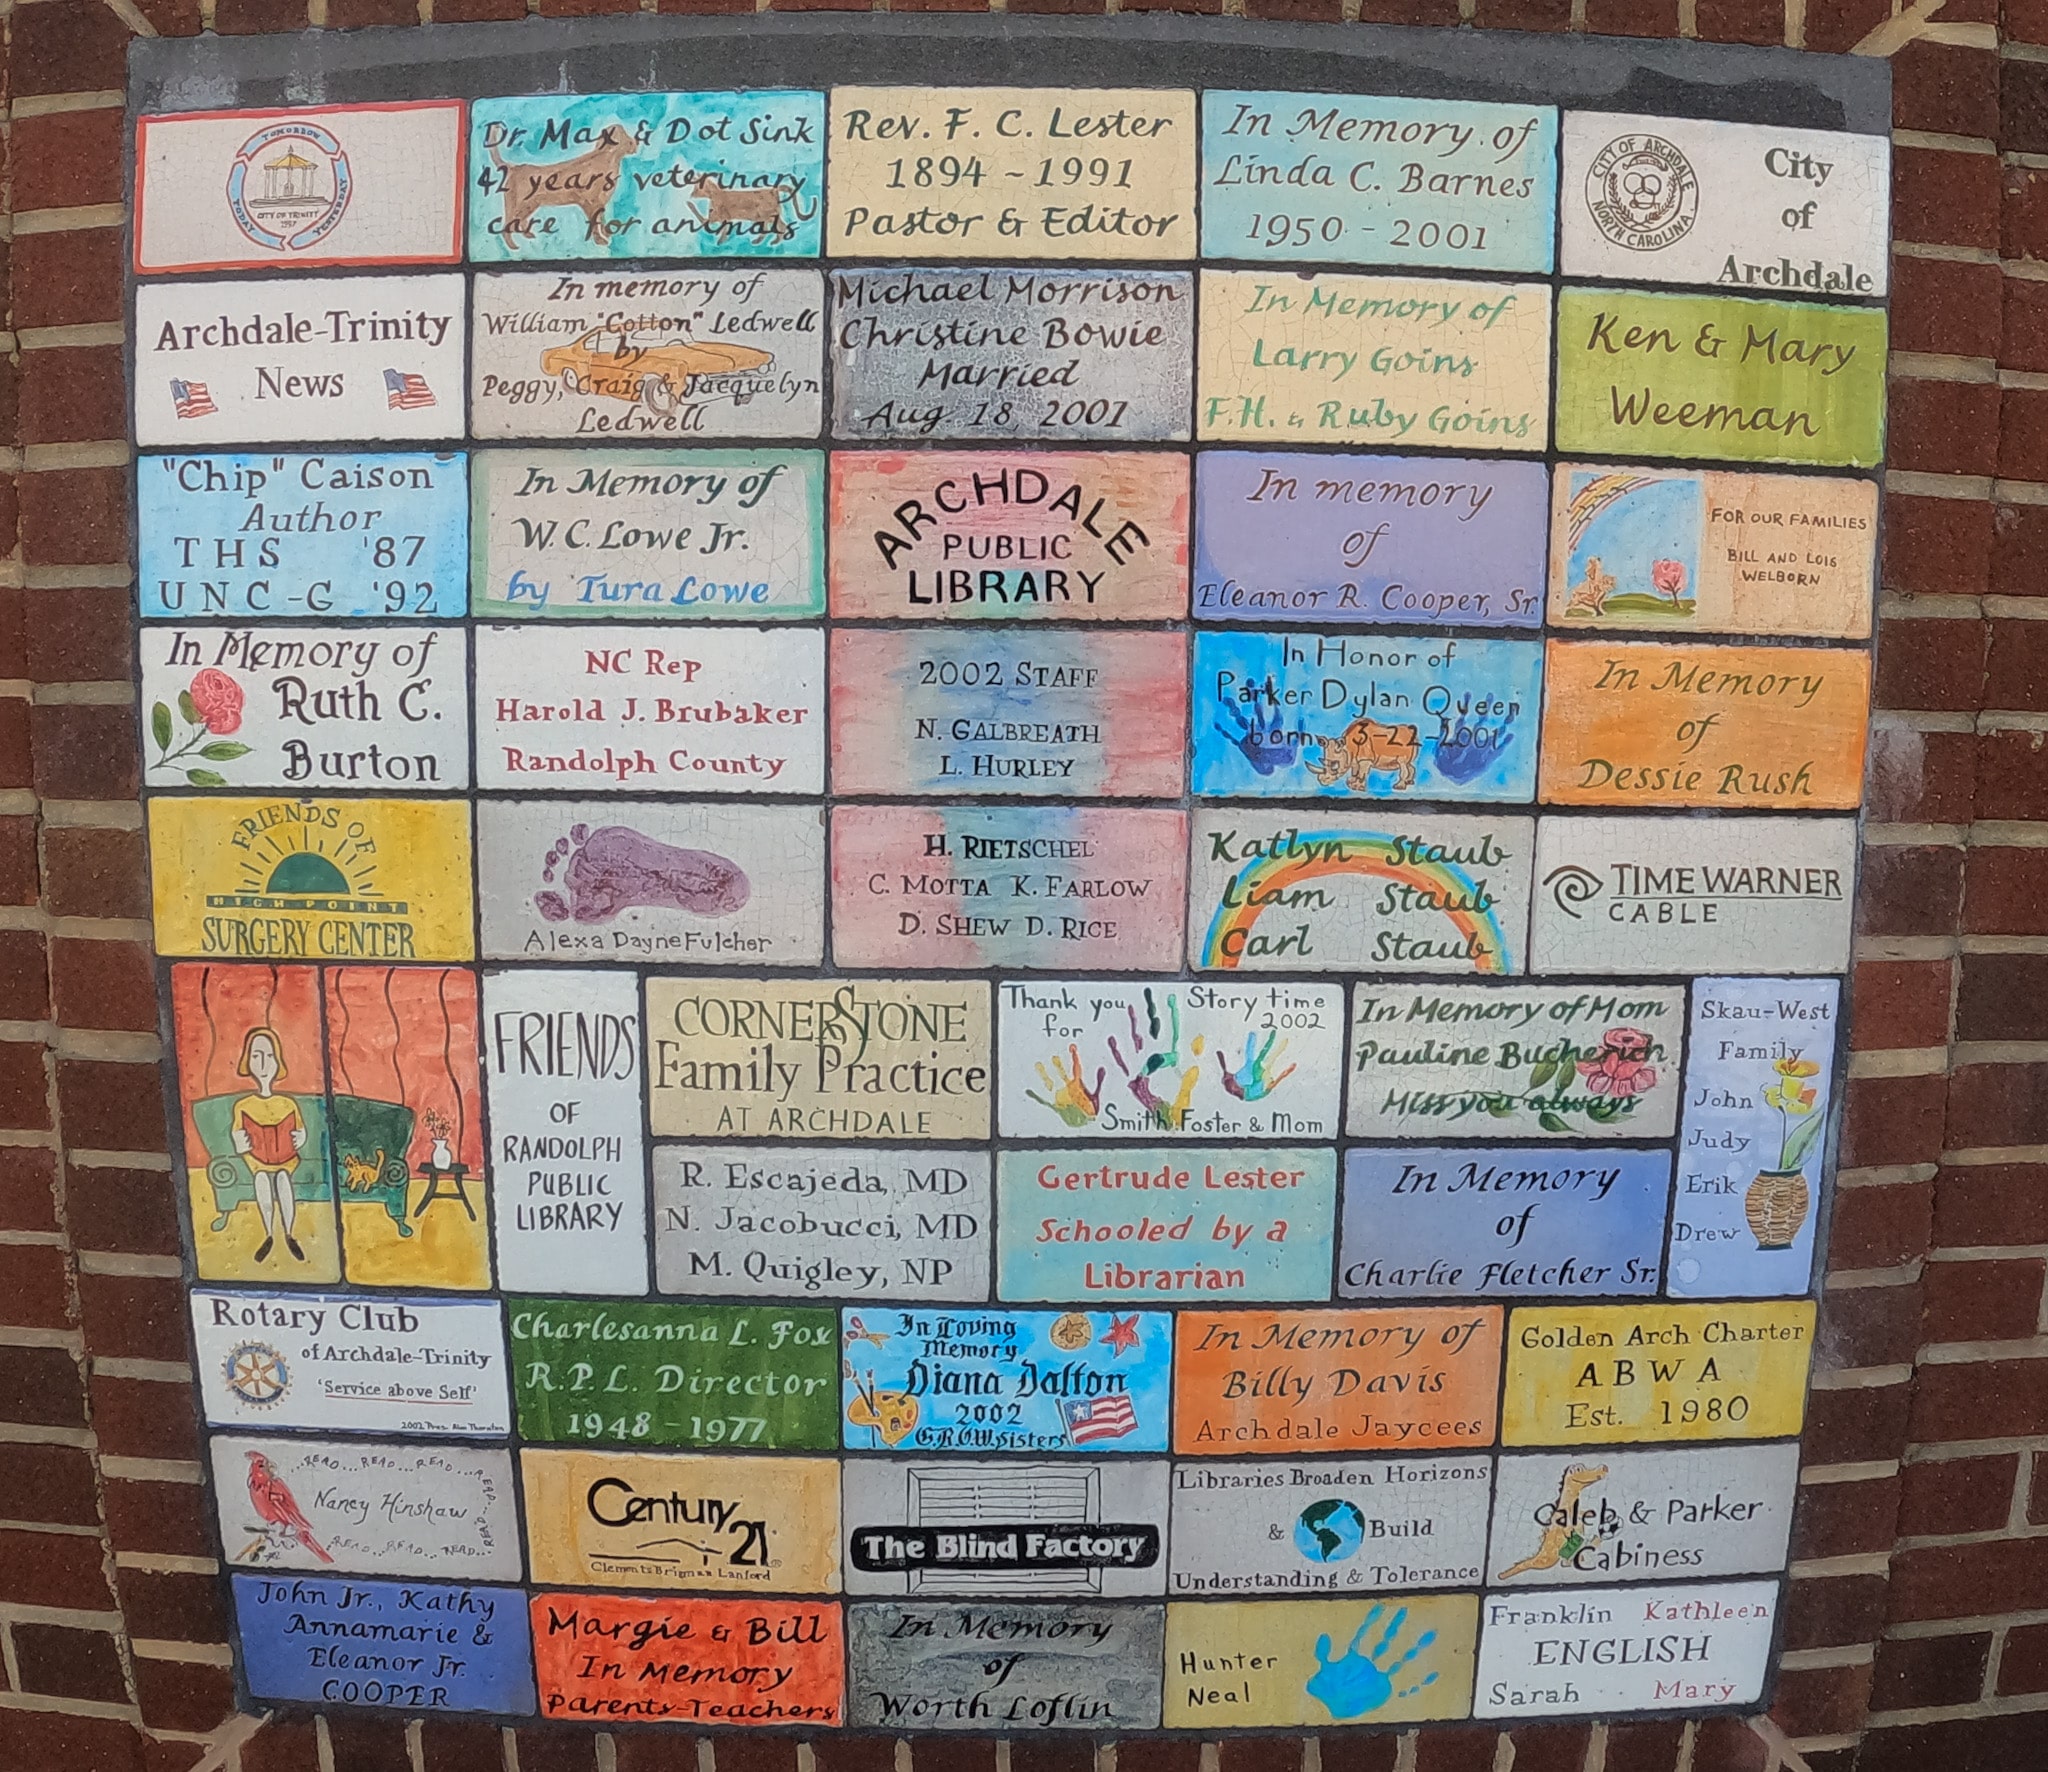 TOMORROW
TODAY
YESTERDAY
CITY OF TRINITY
1997
Dr. Max & Dot Sink
42 years veterinary
care for animals
Rev. F. C. Lester
1894 ~ 1991
Pastor & Editor
In Memory of
Linda C. Barnes
1950 - 2001
CITY OF ARCHDALE
NORTH CAROLINA
City
of
Archdale
Archdale-Trinity
News
In memory of
William "Cotton" Ledwell
by
Peggy, Craig & Jacquelyn
Ledwell
Michael Morrison
Christine Bowie
Married
Aug. 18, 2001
In Memory of
Larry Goins
F.H. & Ruby Goins
Ken & Mary
Weeman
"Chip" Caison
Author
THS '87
UNC-G '92
In Memory of
W.C. Lowe Jr.
by Tura Lowe
ARCHDALE
PUBLIC
LIBRARY
In memory
of
Eleanor R. Cooper, Sr.
FOR OUR FAMILIES
BILL AND LOIS
WELBORN
In Memory of
Ruth C.
Burton
NC Rep
Harold J. Brubaker
Randolph County
2002 STAFF
N. GALBREATH
L. HURLEY
In Honor of
Parker Dylan Queen
born 3-22-2001
In Memory
of
Dessie Rush
FRIENDS OF
HIGH POINT
SURGERY CENTER
Alexa Dayne Fulcher
H. RIETSCHEL
C. MOTTA K. FARLOW
D. SHEW D. RICE
Katlyn Staub
Liam Staub
Carl Staub
TIME WARNER
CABLE
FRIENDS
OF
RANDOLPH
PUBLIC
LIBRARY
CORNERSTONE
Family Practice
AT ARCHDALE
Thank you Story time
for 2002
Smith Foster & Mom
In Memory of Mom
Pauline Bucherich
Miss you always
Skau-West
Family
John
Judy
Erik
Drew
R. Escajeda, MD
N. Jacobucci, MD
M. Quigley, NP
Gertrude Lester
Schooled by a
Librarian
In Memory
of
Charlie Fletcher Sr.
Rotary Club
of Archdale-Trinity
'Service above Self'
2002 Pres. Alan Thornton
Charlesanna L. Fox
R.P.L. Director
1948 - 1977
In Loving
Memory
Diana Dalton
2002
G.R.O.W. Sisters
In Memory of
Billy Davis
Archdale Jaycees
Golden Arch Charter
ABWA
Est. 1980
...READ...READ...READ...READ...READ
Nancy Hinshaw
...READ...READ...READ...
Century 21
Clements Brigman Lanford
The Blind Factory
Libraries Broaden Horizons
& Build
Understanding & Tolerance
Caleb & Parker
Cabiness
John Jr., Kathy
Annamarie &
Eleanor Jr.
COOPER
Margie & Bill
In Memory
Parents-Teachers
In Memory
of
Worth Loflin
Hunter
Neal
Franklin Kathleen
ENGLISH
Sarah Mary